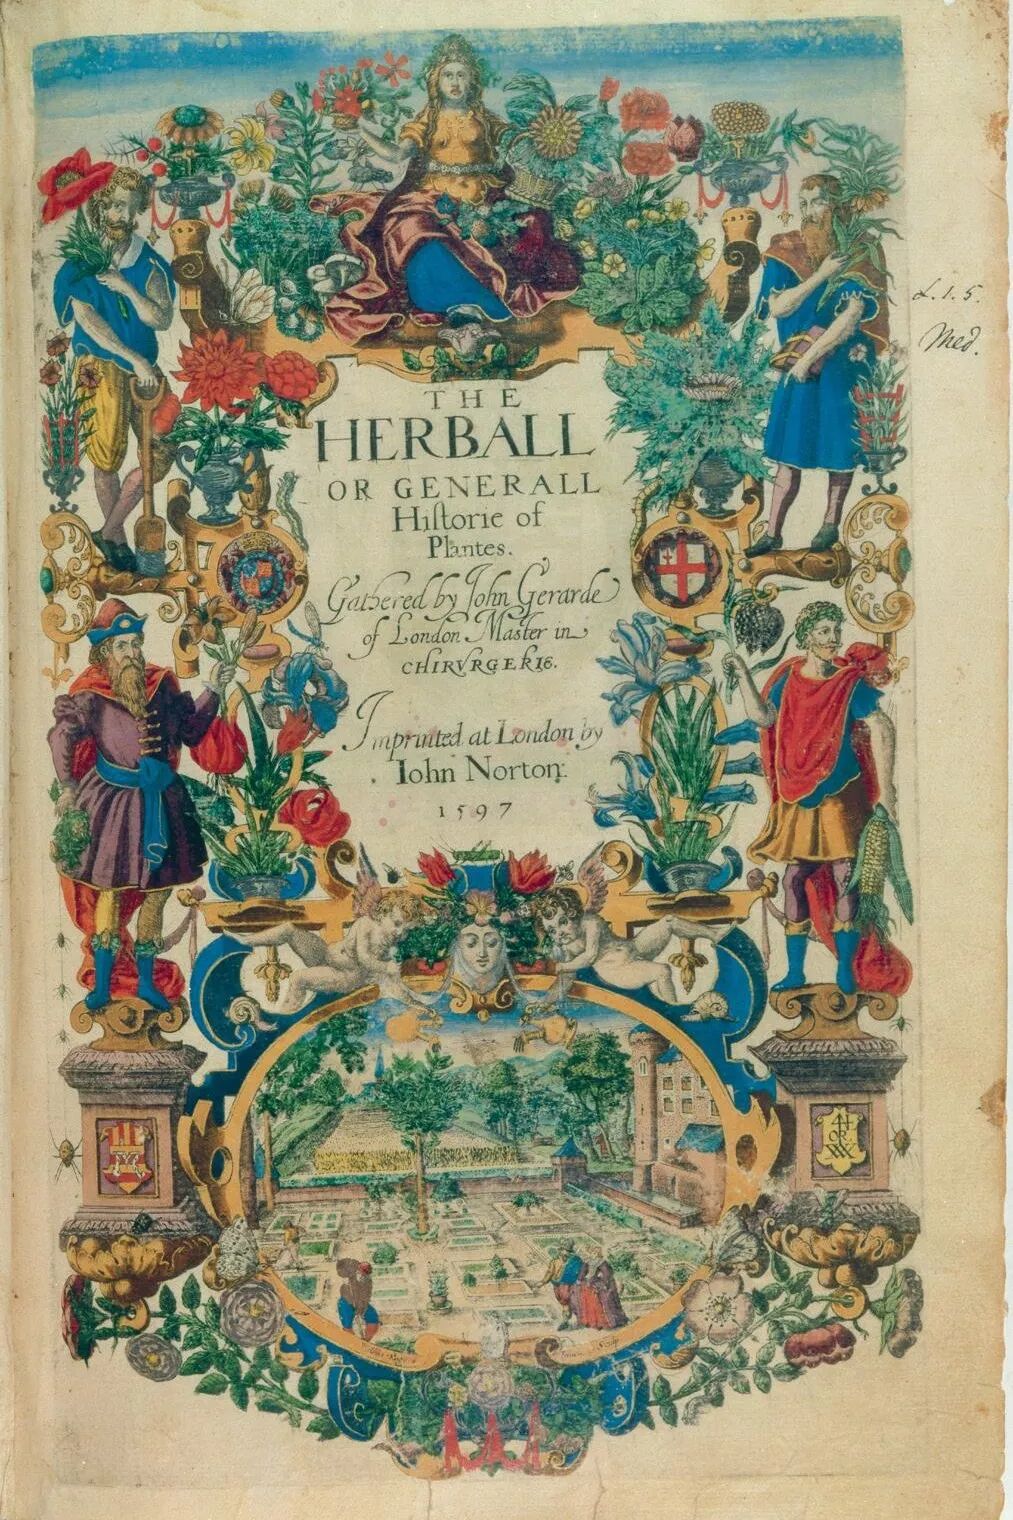 THE
HERBALL
OR GENERALL
Hiſtorie of
Plantes.
Gathered by John Gerarde
of London Master in
CHIRVRGERIE.
Imprinted at London by
Iohn Norton.
1597
L. 1. 5.
Med.